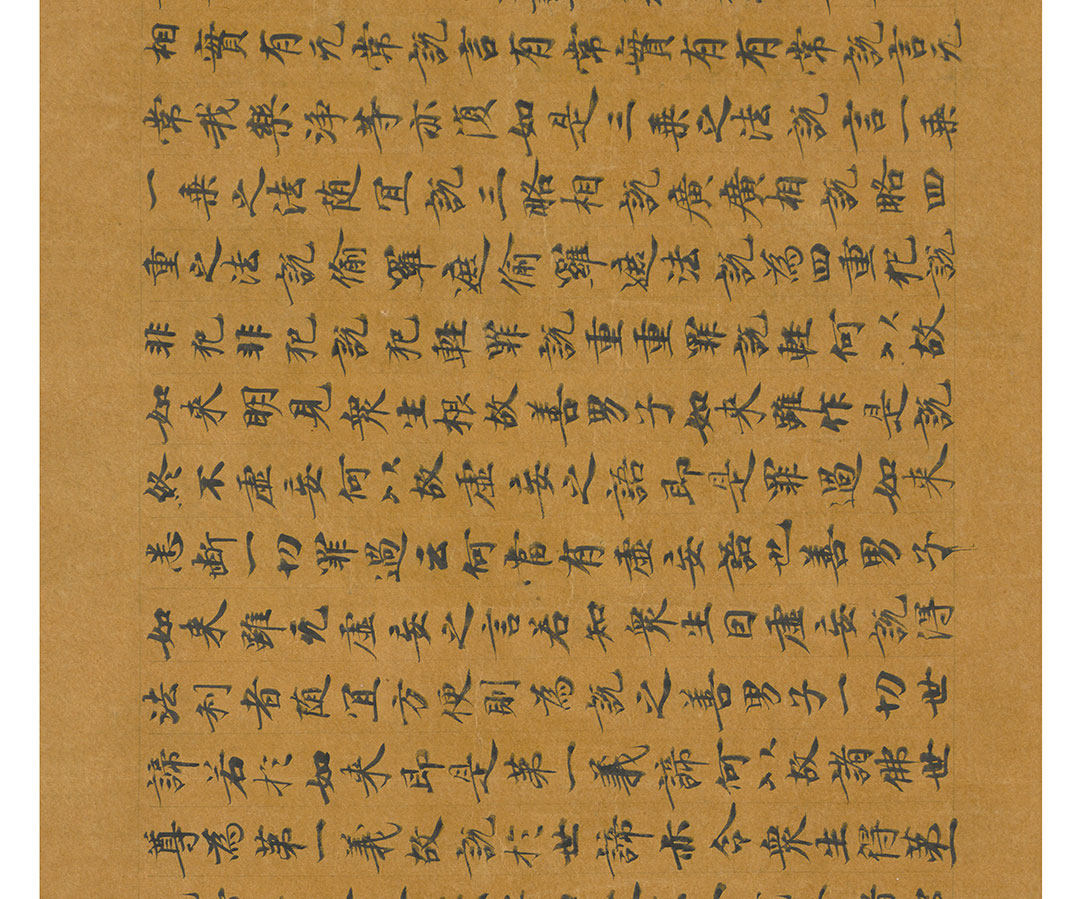 相實有无常說言有常實有有常說言无
常我樂淨等亦須如是三乘之法說言一乘
一乘之法随宜說三略相說廣廣相說略四
重之法說偷羅遮偷羅遮法說為四重犯說
非犯非犯說犯輕罪說重重罪說輕何以故
如来明見衆生根故善男子如来雖作是說
終不虛妄何以故虛妄之語即是罪過如来
悉斷一切罪過云何當有虛妄語也善男子
如来雖无虛妄之言若知衆生因虛妄說得
法利者随宜方便則為說之善男子一切世
諦若於如来即是第一義諦何以故諸佛世
尊為第一義故說於世諦亦令衆生得第一